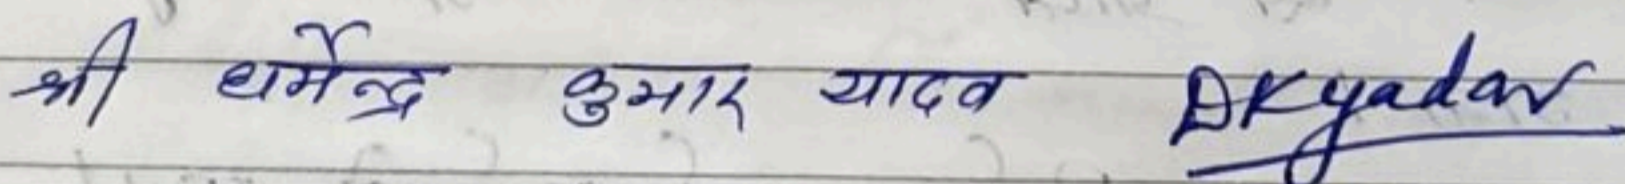 श्री धर्मेन्द्र कुमार यादव DKyadav